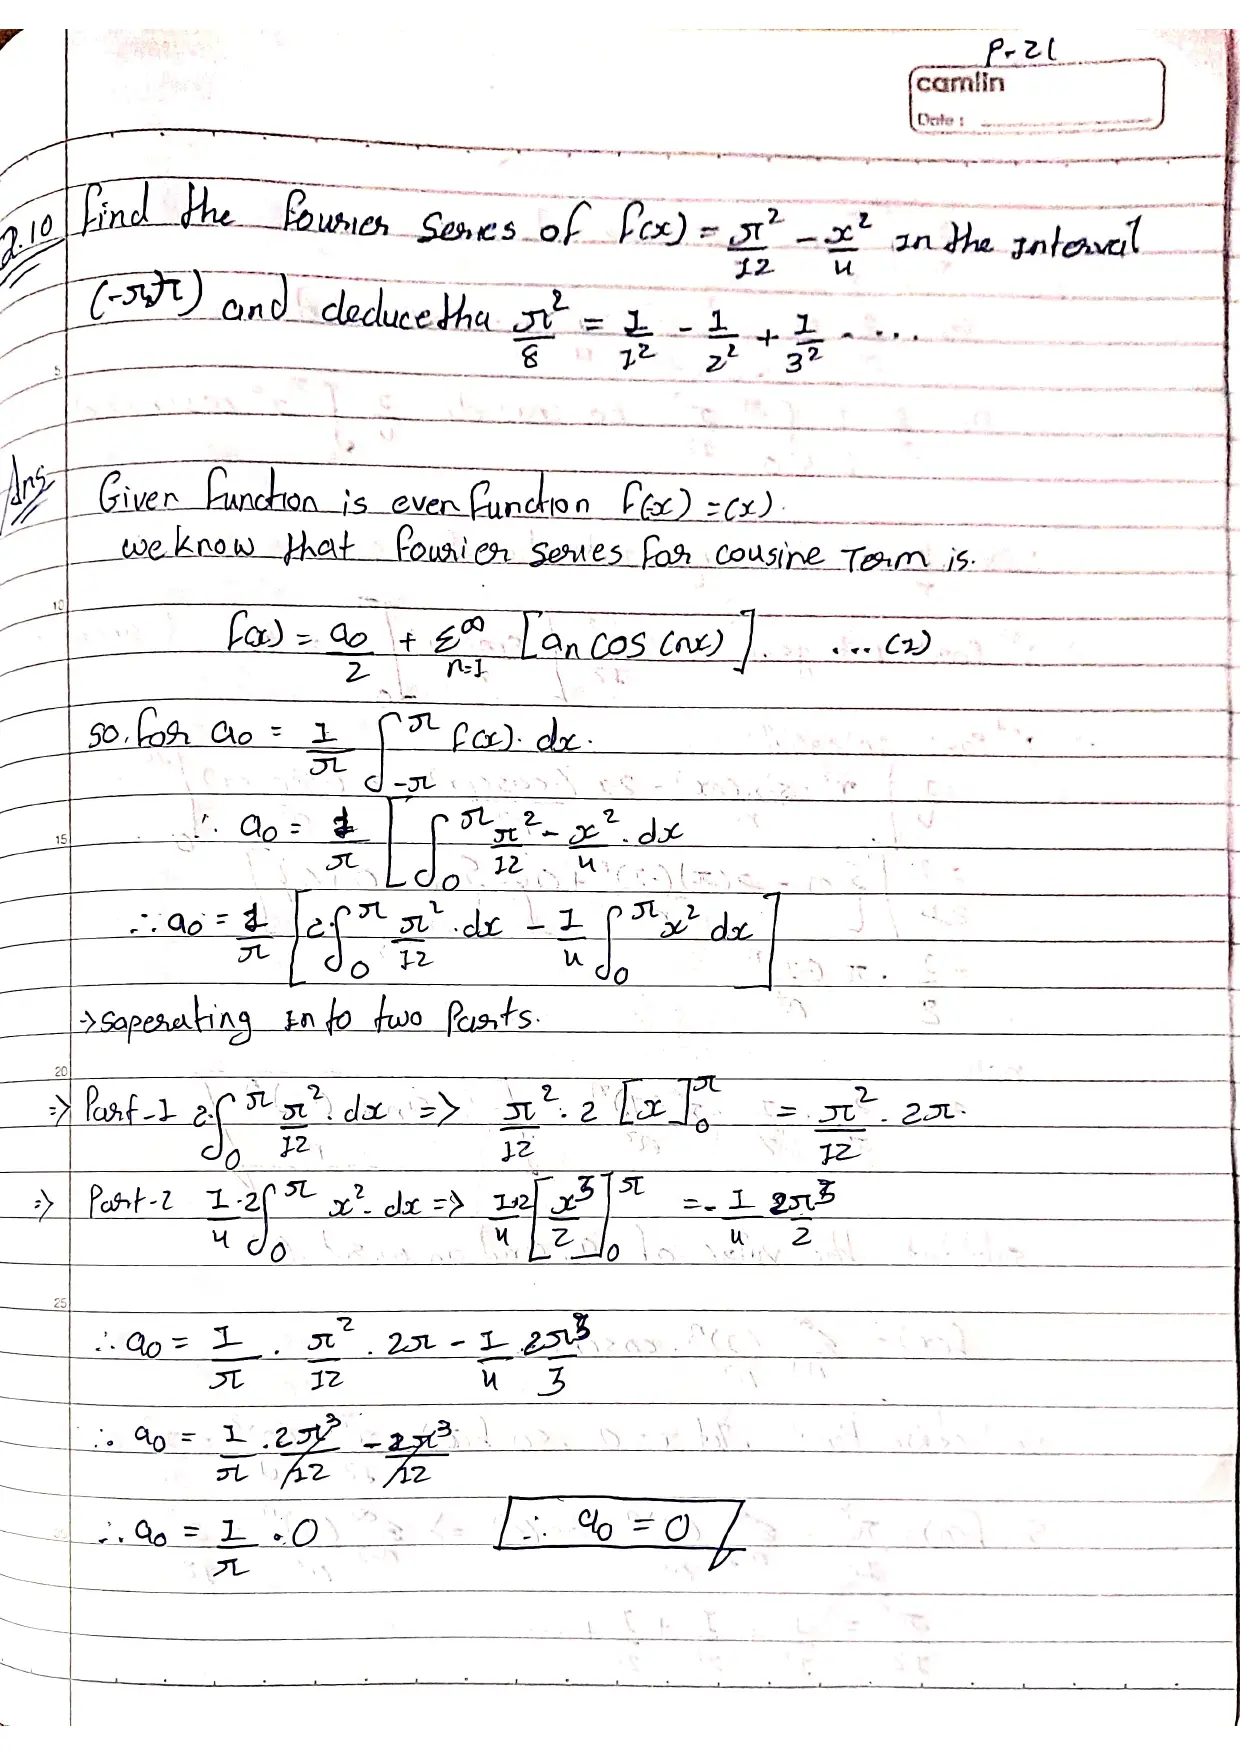 P-21
camlin
Date :
Q.10 find the fourier series of f(x) = π²/12 - x²/4 in the interval
(-π,π) and deduce tha π²/8 = 1/1² - 1/2² + 1/3² - ...
Ans Given function is even function f(-x) = (x).
we know that fourier series for cousine Term is.
f(x) = a0/2 + Σ∞ n=1 [an cos (nx)]. ... (2)
so. for a0 = 1/π ∫-π^π f(x). dx.
∴ a0 = 1/π [∫0^π π²/12 - x²/4 . dx
∴ a0 = 1/π [2.∫0^π π²/12 .dx - 1/4 ∫0^π x² dx]
→ saperating into two Parts.
⇒ Part-1 2.∫0^π π²/12 . dx => π²/12 . 2 [x]0^π = π²/12 . 2π.
⇒ Part-2 1/4 .2∫0^π x². dx => 1.2/4 [x³/2]0^π = - 1/4 2π³/2
∴ a0 = 1/π . π²/12 . 2π - 1/4 . 2π³/3
∴ a0 = 1/π . 2π³/12 - 2π³/12
∴ a0 = 1/π . 0 ∴ a0 = 0
5
10
15
20
25